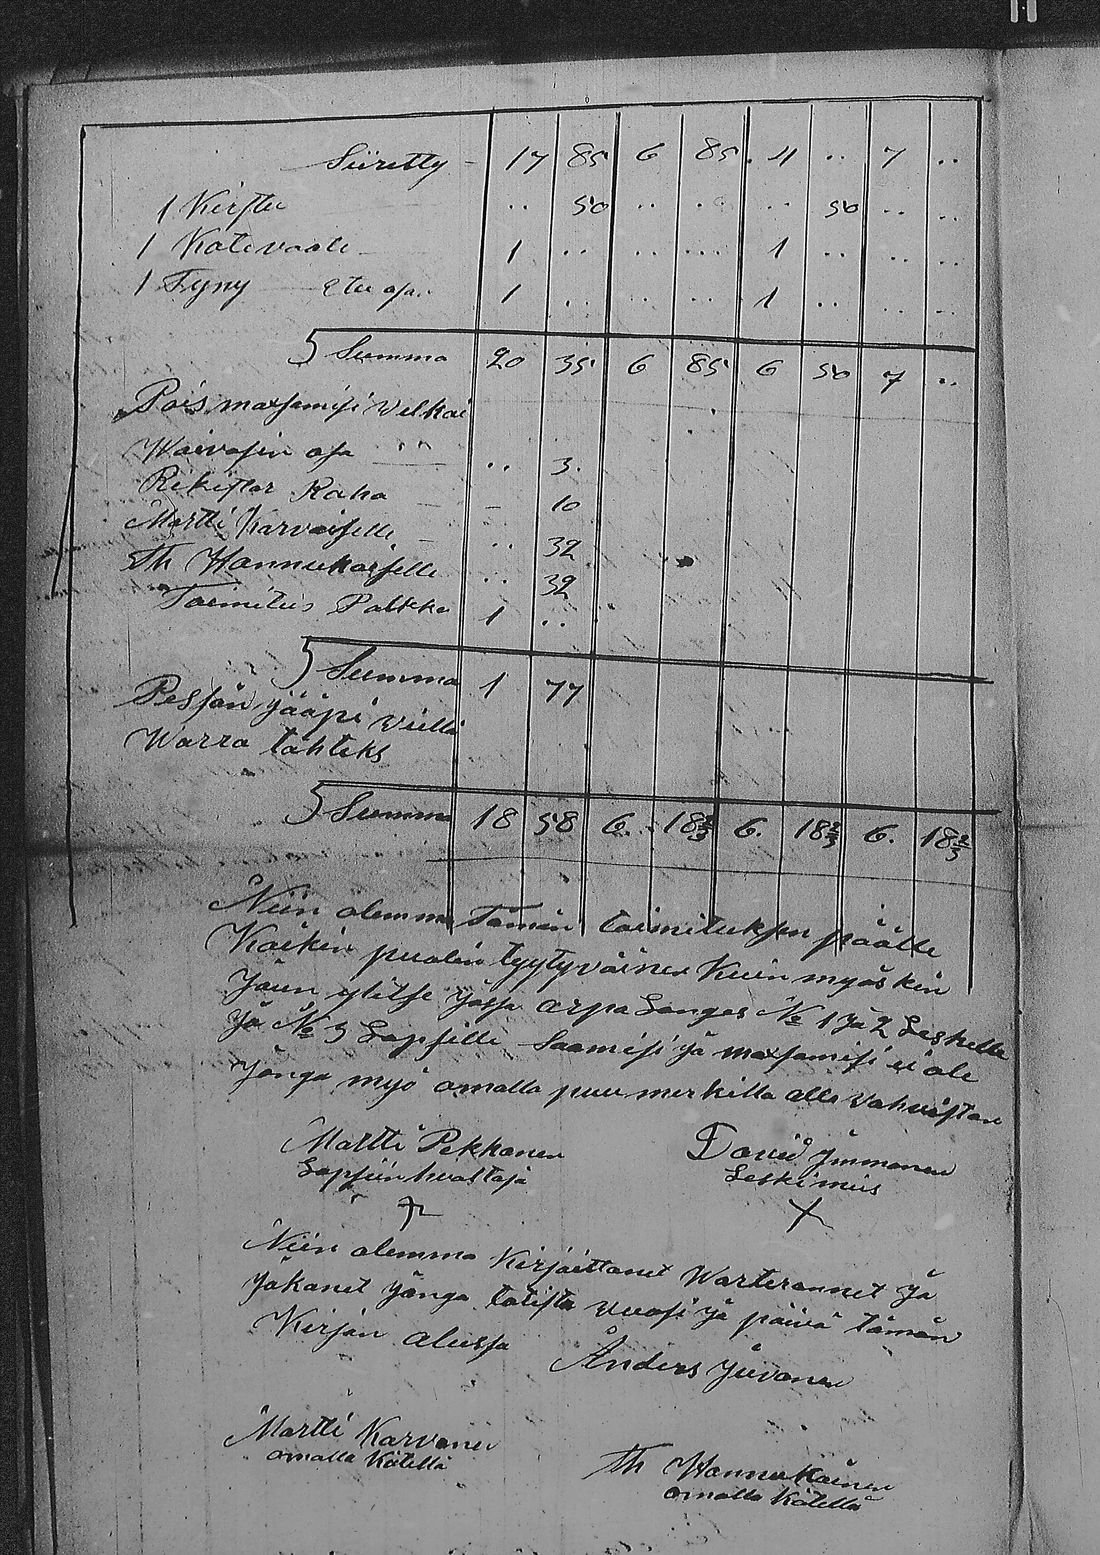 Siiretty - 17 85 6 85 . 4 .. 7 ..
1 Kirstu .. 50 .. .. .. 50 .. ..
1 Kätevaate 1 .. .. .. 1 .. .. ..
1 Tyny Etu osa.. 1 .. .. .. 1 .. .. ..
Summa 20 35 6 85 6 50 7 ..
Pois maxsamisi velkai
Waivasin osa .. 3.
Rekistor Raha - 10
Martti Karvoiselle .. 32
Th Hannukaiselle .. 32
Toimitus Palkka 1 ..
Summa 1 77
Pessän jääpi vielä
Warra tähteks
Summa 18 58 6. 18 2/3 6. 18 2/3 6. 18 2/3
Niin olemma Tämän toimituksen päälle
Kaikin puolin tyytyväinen Kuin myös kin
Jaun ylitse Jossa arpa Langes № 1 Ja 2 Leskelle
Ja № 3 Lapsille Saamisi Ja maxsamisi ei ole
Jonga myö omalla puumerkillä alla vahvistan
Martti Pekkonen David Immonen
Lapsiin hualtaja Leskimies
Niin olemma Kirjoittanet Warteerannet Ja
Jakanet Jonga todista vuosi Ja päivä tämän
Kirjan alussa Anders Juvonen
Martti Karvonen
omalla Kätellä
Th Hannukainen
omalla Kätellä